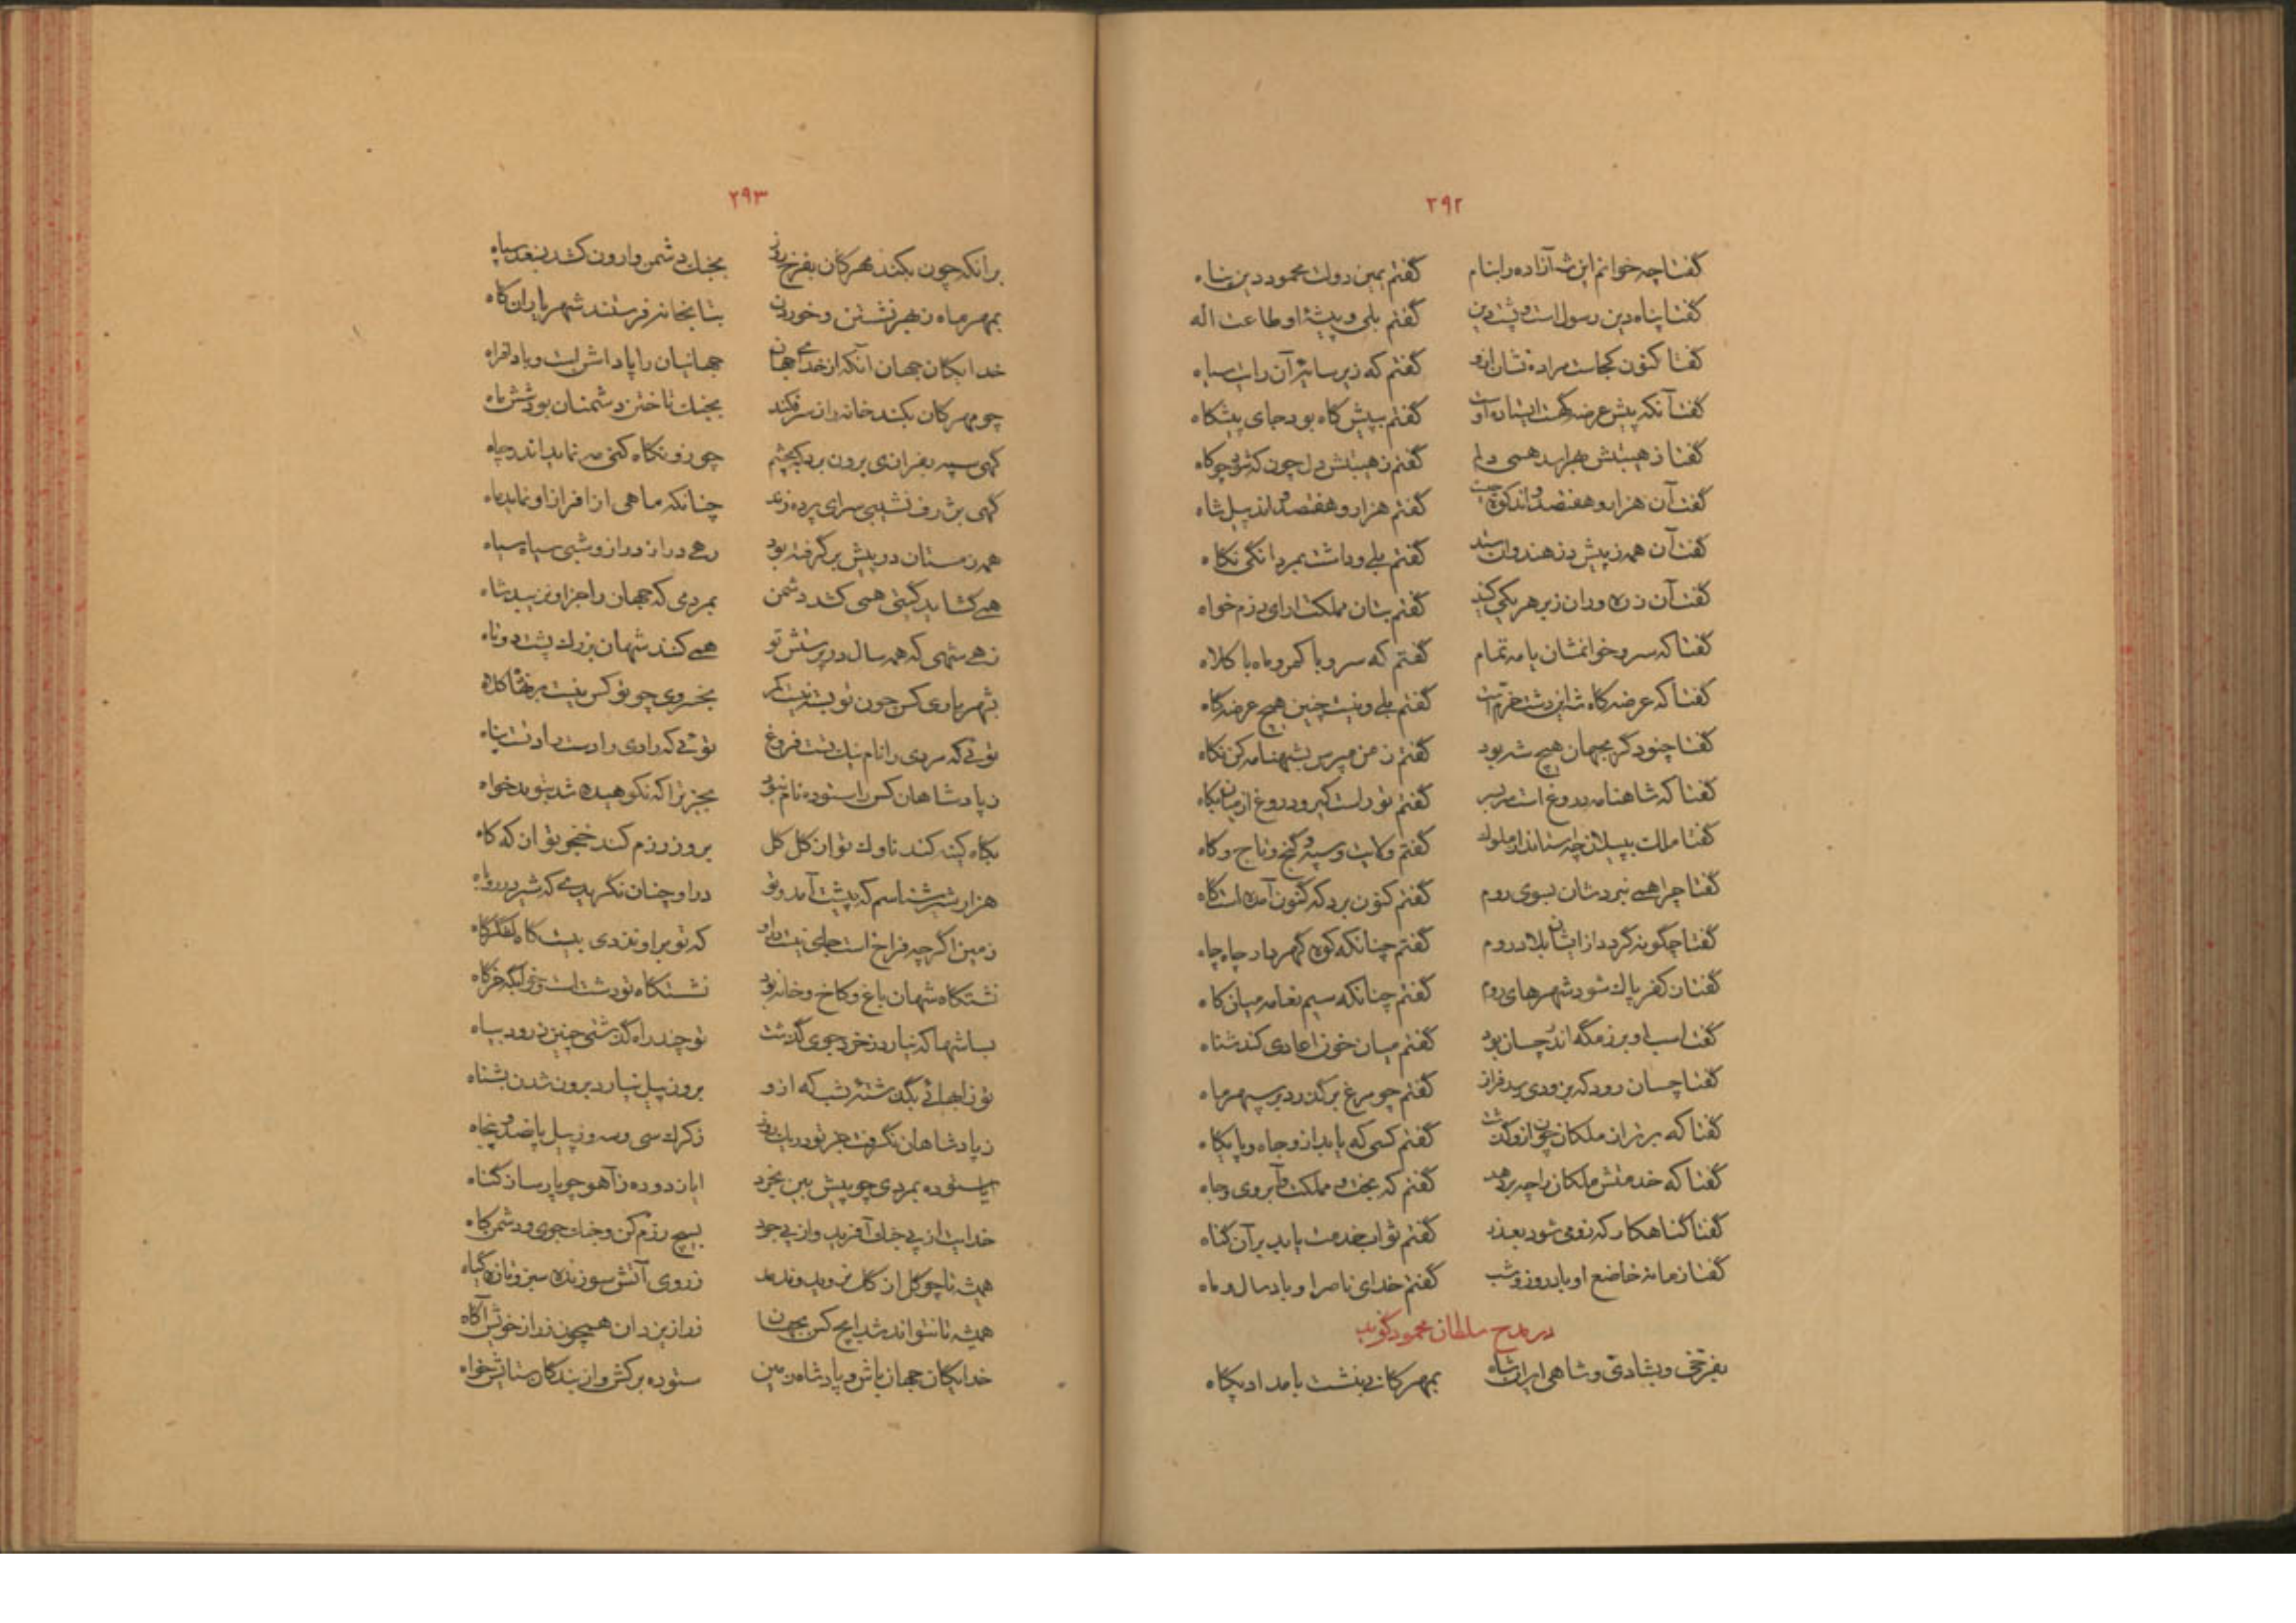 ۲۹۲
گفتا چه خوانم این شه آزاده را بنام گفتم یمین دولت محمود دین پناه
گفتا پناه دین رسول است و پشت دین گفتم بلی و پیشهٔ او طاعت اله
گفتا کنون کجاست مرا ده نشان ازو گفتم که زیر سایهٔ آن رایت سیاه
گفتا آنکه پیش عرضه گهت ایستاده اوست گفتم بپیش گاه بود جای پیشگاه
گفتا ز هیبتش بهراسد همی دلم گفتم ز هیبتش دل چون که شود چو کاه
گفت آن هزار و هفتصد و اند کوه چیست گفتم هزار و هفتصد و اند پیل شاه
گفت آن همه ز پیش در هندوان ستد گفتم بلی و داشت بمردانگی نگاه
گفت آن زره وران زبر هر یکی کیند گفتم بتان مملکت ارای رزم خواه
گفتا که سرو خوانمشان یا مه تمام گفتم که سرو با کمر و ماه با کلاه
گفتا که عرضه گاه شه این دشت خرم است گفتم بلی و نیست چنین هیچ عرضه گاه
گفتا چنود گر بجهان هیچ شه بود گفتم ز من مپرس بشهنامه کن نگاه
گفتا که شاهنامه دروغ است سربسر گفتم تو راست گیر و دروغ از میان بکاه
گفتا ملک بپیلان چه ستاند از ملوک گفتم ولایت و سپه و گنج و تاج و گاه
گفتا چرا همی نبردشان بسوی روم گفتم کنون برد که کنون آمده است گاه
گفتا چگونه گردد از ایشان بلاد روم گفتم چنانکه کوه گهر بار چاه چاه
گفتا ز کفر پاک شود شهرهای روم گفتم چنانکه سیم نغامه میان گاه
گفتا اسب او برزمگه اندر چسان بود گفتم میان خون اعادی کند شناه
گفتا چسان رود که بر رودی رسد فراز گفتم چو مرغ برگذرد بر سپهر ماه
گفتا که برتر از ملکان چون ازو گذشت گفتم کسی که یابد ازو جاه و پایگاه
گفتا که خدمتش ملکان را چه بر دهد گفتم که بخت و مملکت و آبروی و جاه
گفتا گناهکار که زو می شود بعذر گفتم ثواب خدمت یابد بر آن گناه
گفتا زمانه خاضع او باد روز و شب گفتم خدای ناصر او باد سال و ماه
در مدح سلطان محمود گوید
بفرخی و بشادی و شاهی ایران شاه بمهرگانی بنشست بامداد پگاه
۲۹۳
بر آنکه چون بکند مهرگان بفرخ روز بجنگ دشمن وارون کشد بسغد سپاه
بمهر ماه ز بهر نشستن و خوردن بتابخانه فرستند شهریاران گاه
خدایگان جهان آنکه از خدای جهان جهانیان را پاداش است و باد افراه
چو مهرگان بکند خانه را ز سر فکند بجنگ تاختن دشمنان بود شش ماه
گهی سپه بفرازی برون برد کچشم چو زو نگاه کنی مه نماید اندر چاه
گهی بژرف نشیبی سرای پرده زند چنانکه ماهی از افراز او نماید ماه
همه زمستان در پیش برگرفته بود رهی دراز دراز و شبی سیاه سیاه
همی گشاید گیتی همی کشد دشمن بمردمی که جهان را جز او نزیبد شاه
زهی شهی که همه سال در پرستش تو همی کنند شهان بزرگ پشت دوتاه
بشهریاری کس چون تو بسته نیست کمر بخسروی چو تو کس نیست بر نهاده کلاه
توئی که مردی را نام نیک تست فروغ توئی که رادی را دست راد تست پناه
ز پادشاهان کس را ستوده نام نبود بجز ترا که نکوهیده شد بتو بدخواه
بگاه کینه کند ناوک تو از گل گل بروز رزم کند خنجر تو از که کاه
هزار شیر شناسم که پیشت آمد و تو در او چنان نگریدی که شیر در روباه
زمین اگرچه فراخ است جای نیست در او که تو بر او نزدی بیست گاه لشکرگاه
نشستگاه شهان باغ و کاخ و خانه بود نشستگاه تو دشت است و خوابگه خرگاه
بسا شها که نیارد ز خرد جوی گذشت تو چند راه گذشتی چنین ز رود بساه
تو ز آبهائی بگذشتهٔ شب که از و بروز پیل نیارد برون شدن بشناه
ز پادشاهان نگرفت جز تو در یک روز ز کرگ سی و سه و ز پیل پانصد و پنجاه
ایا ستوده بمردی چو پیش بین بخرد ایا زدوده ز آهو چو پارسا ز گناه
خدایت از پی جنگ آفرید و از پی جود بسیج رزم کن و جنگ جوی و دشمن کاه
همیشه تا چو گل از گل نروید و ندمد ز روی آتش سوزنده سبز و تازه گیاه
همیشه تا نتواند شد ایچ کس بجهان ز راز یزدان همچون ز راز خویش آگاه
خدایگان جهان باش و پادشاه زمین ستوده برکش و از بندگان ستایش خواه